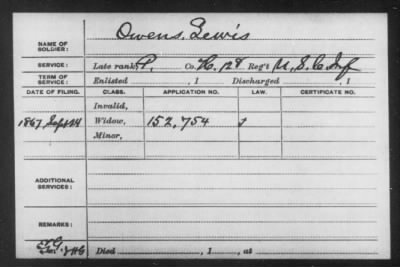 Owens, Lewis
NAME OF SOLDIER:
SERVICE: Late rank, P. Co. K. 128 Reg't U. S. C. Inf
TERM OF SERVICE: Enlisted , 1 Discharged , 1
DATE OF FILING. CLASS. APPLICATION NO. LAW. CERTIFICATE NO.
Invalid,
1867 Sept Widow, 152,754
Minor,
ADDITIONAL SERVICES:
REMARKS:
Died , 1 , at